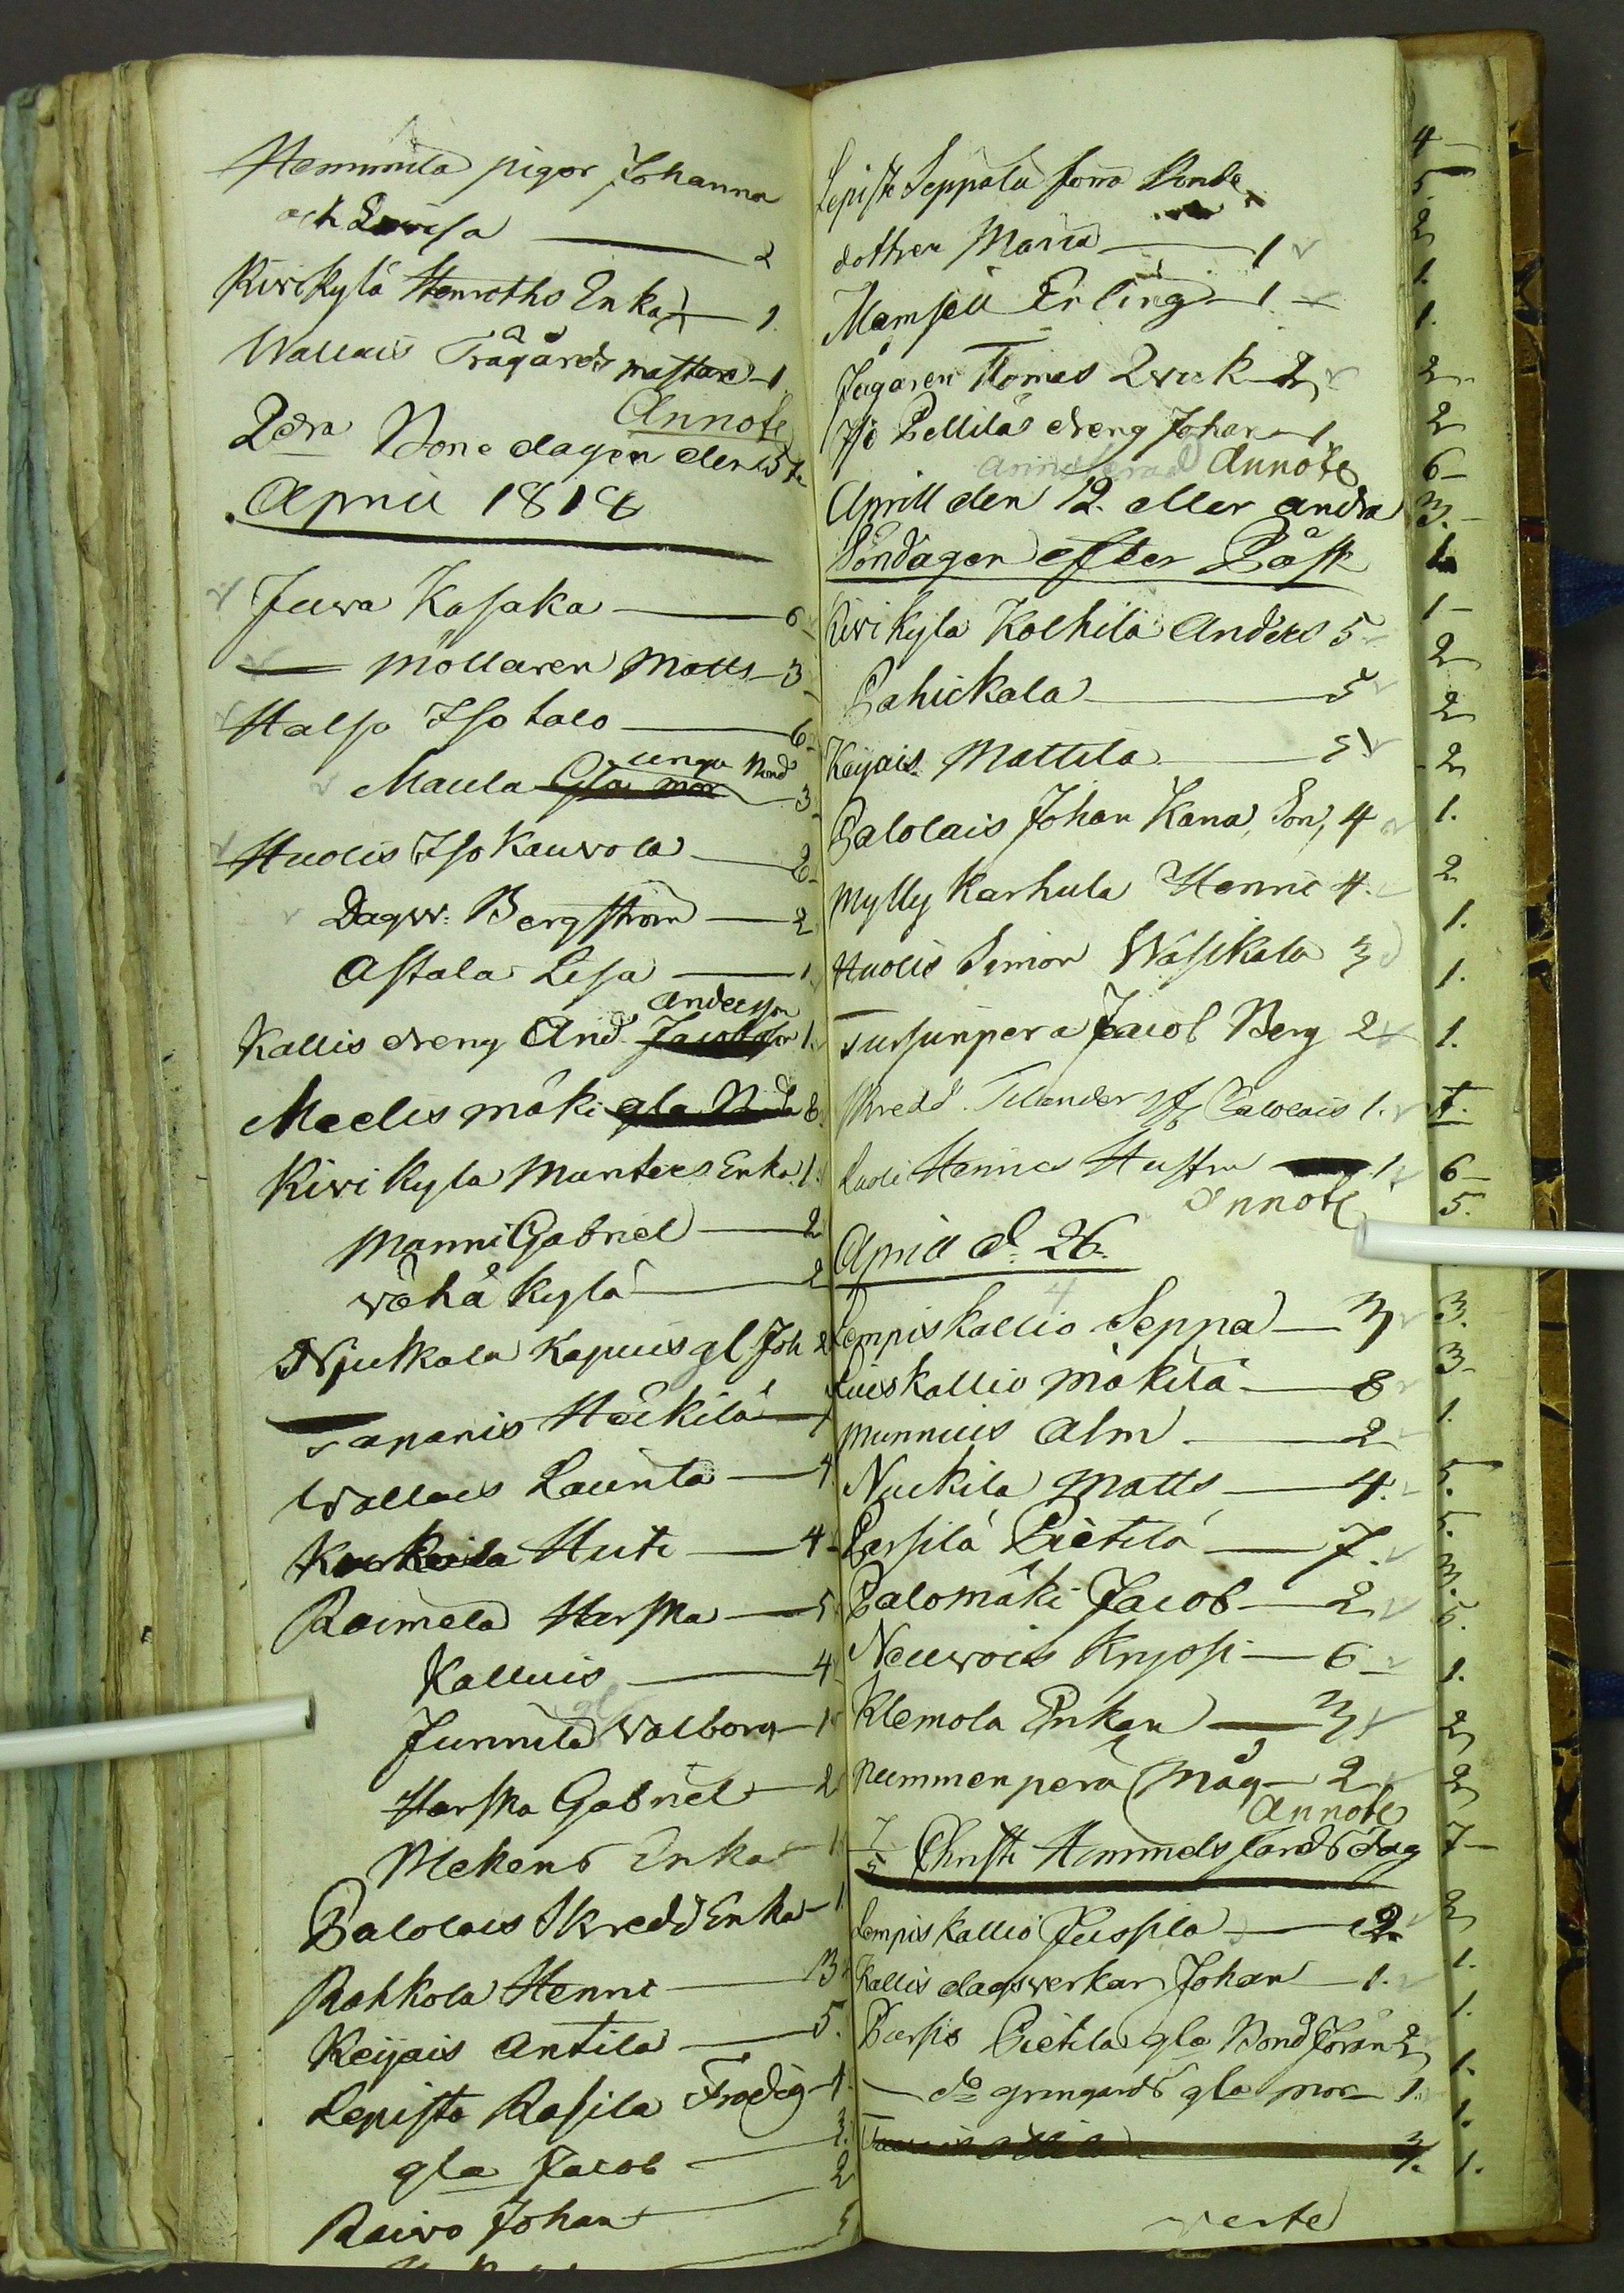 Hemmila pigor Johanna
och Lovisa — 2
Kivikylä Hemroths Enka — 1.
Wallais Trägårds mästare — 1.
Annote
2dra Böne dagen den 5te
April 1818
Juwa Kasaka — 6
— Möllaren Matts — 3
Halso Iso talo — 6
unga Bond
Maula Gla mor — 3
Huolis Iso Kauvola — 2
Dagsv. Bergström — 2
Astala Lisa — 1
Andersson
Kallis dreng And. Jacobsson 1.
Meelis mäki gla 8.
Kivi kyla Munters Enka. 1.
Manni Gabriel — 2
Wähä kylä — 2
Njukala Kapuis gl Joh 2
Tapanis Häikilä
Wallais Launta — 4
Huti — 4
Raimela Harska — 5
Kalluis — 4
gl
Junnila Walborg — 1
Harska Gabriel — 2
Mekens Enka — 1
Palolais Skredd Enka — 1
Rahkola Henric — 3
Keijais Antila — 5.
Lepistö Rasila Frodig — 1.
gla Jacob — 3.
Raivo Johan — 2
Lepistö Seppälä förra Bonde
dottren Maria — 1
Mamsell Erling — 1.
Jägaren Tomas Qvick — 2
Iso Pellilas dreng Johan — 1.
Annoterad Annote
Aprill den 12. eller andra
Söndagen efter Påsk
Kivikyla Kolhila Anders 5
Pahickala — 5
Keijais Mattila — 5
Palolais Johan Kana, Son, 4
Mylly Karhula Henric 4.
Huolis Simon Wasikala 3
Tursunpera Jacob Berg 2
Skredd. Tilander Palolais 1.
Henrics Hustru 1.
Annote
Aprill d. 26.
4
Lempiskallio Seppä — 3
Luiskallio mäkilä — 8
Munnuis Alm — 2
Nuckila Matts — 4.
Parsilä Pietilä — 7.
Palomäki Jacob — 2
Neuvois Kryosi — 6
Klemola Enkan — 3
Nummenperä Måg — 2
Annote
7/5 Christi Himmelsfärds dag
Lempis kallio Jussila — 2.
Kallis dagsverkar Johan — 1.
Pietilas gla Bond Jöran 2
— do gringards gla mor — 1.
3.
verte
4 —
5.
2
1.
1.
2
2
6 —
3. —
1.
1 —
2
2
2
1.
2
1.
1.
1.
1.
6 —
5.
3.
3 —
1.
5.
5.
3.
5.
1.
2
2
7 —
2
1.
1.
1.
1.
1.